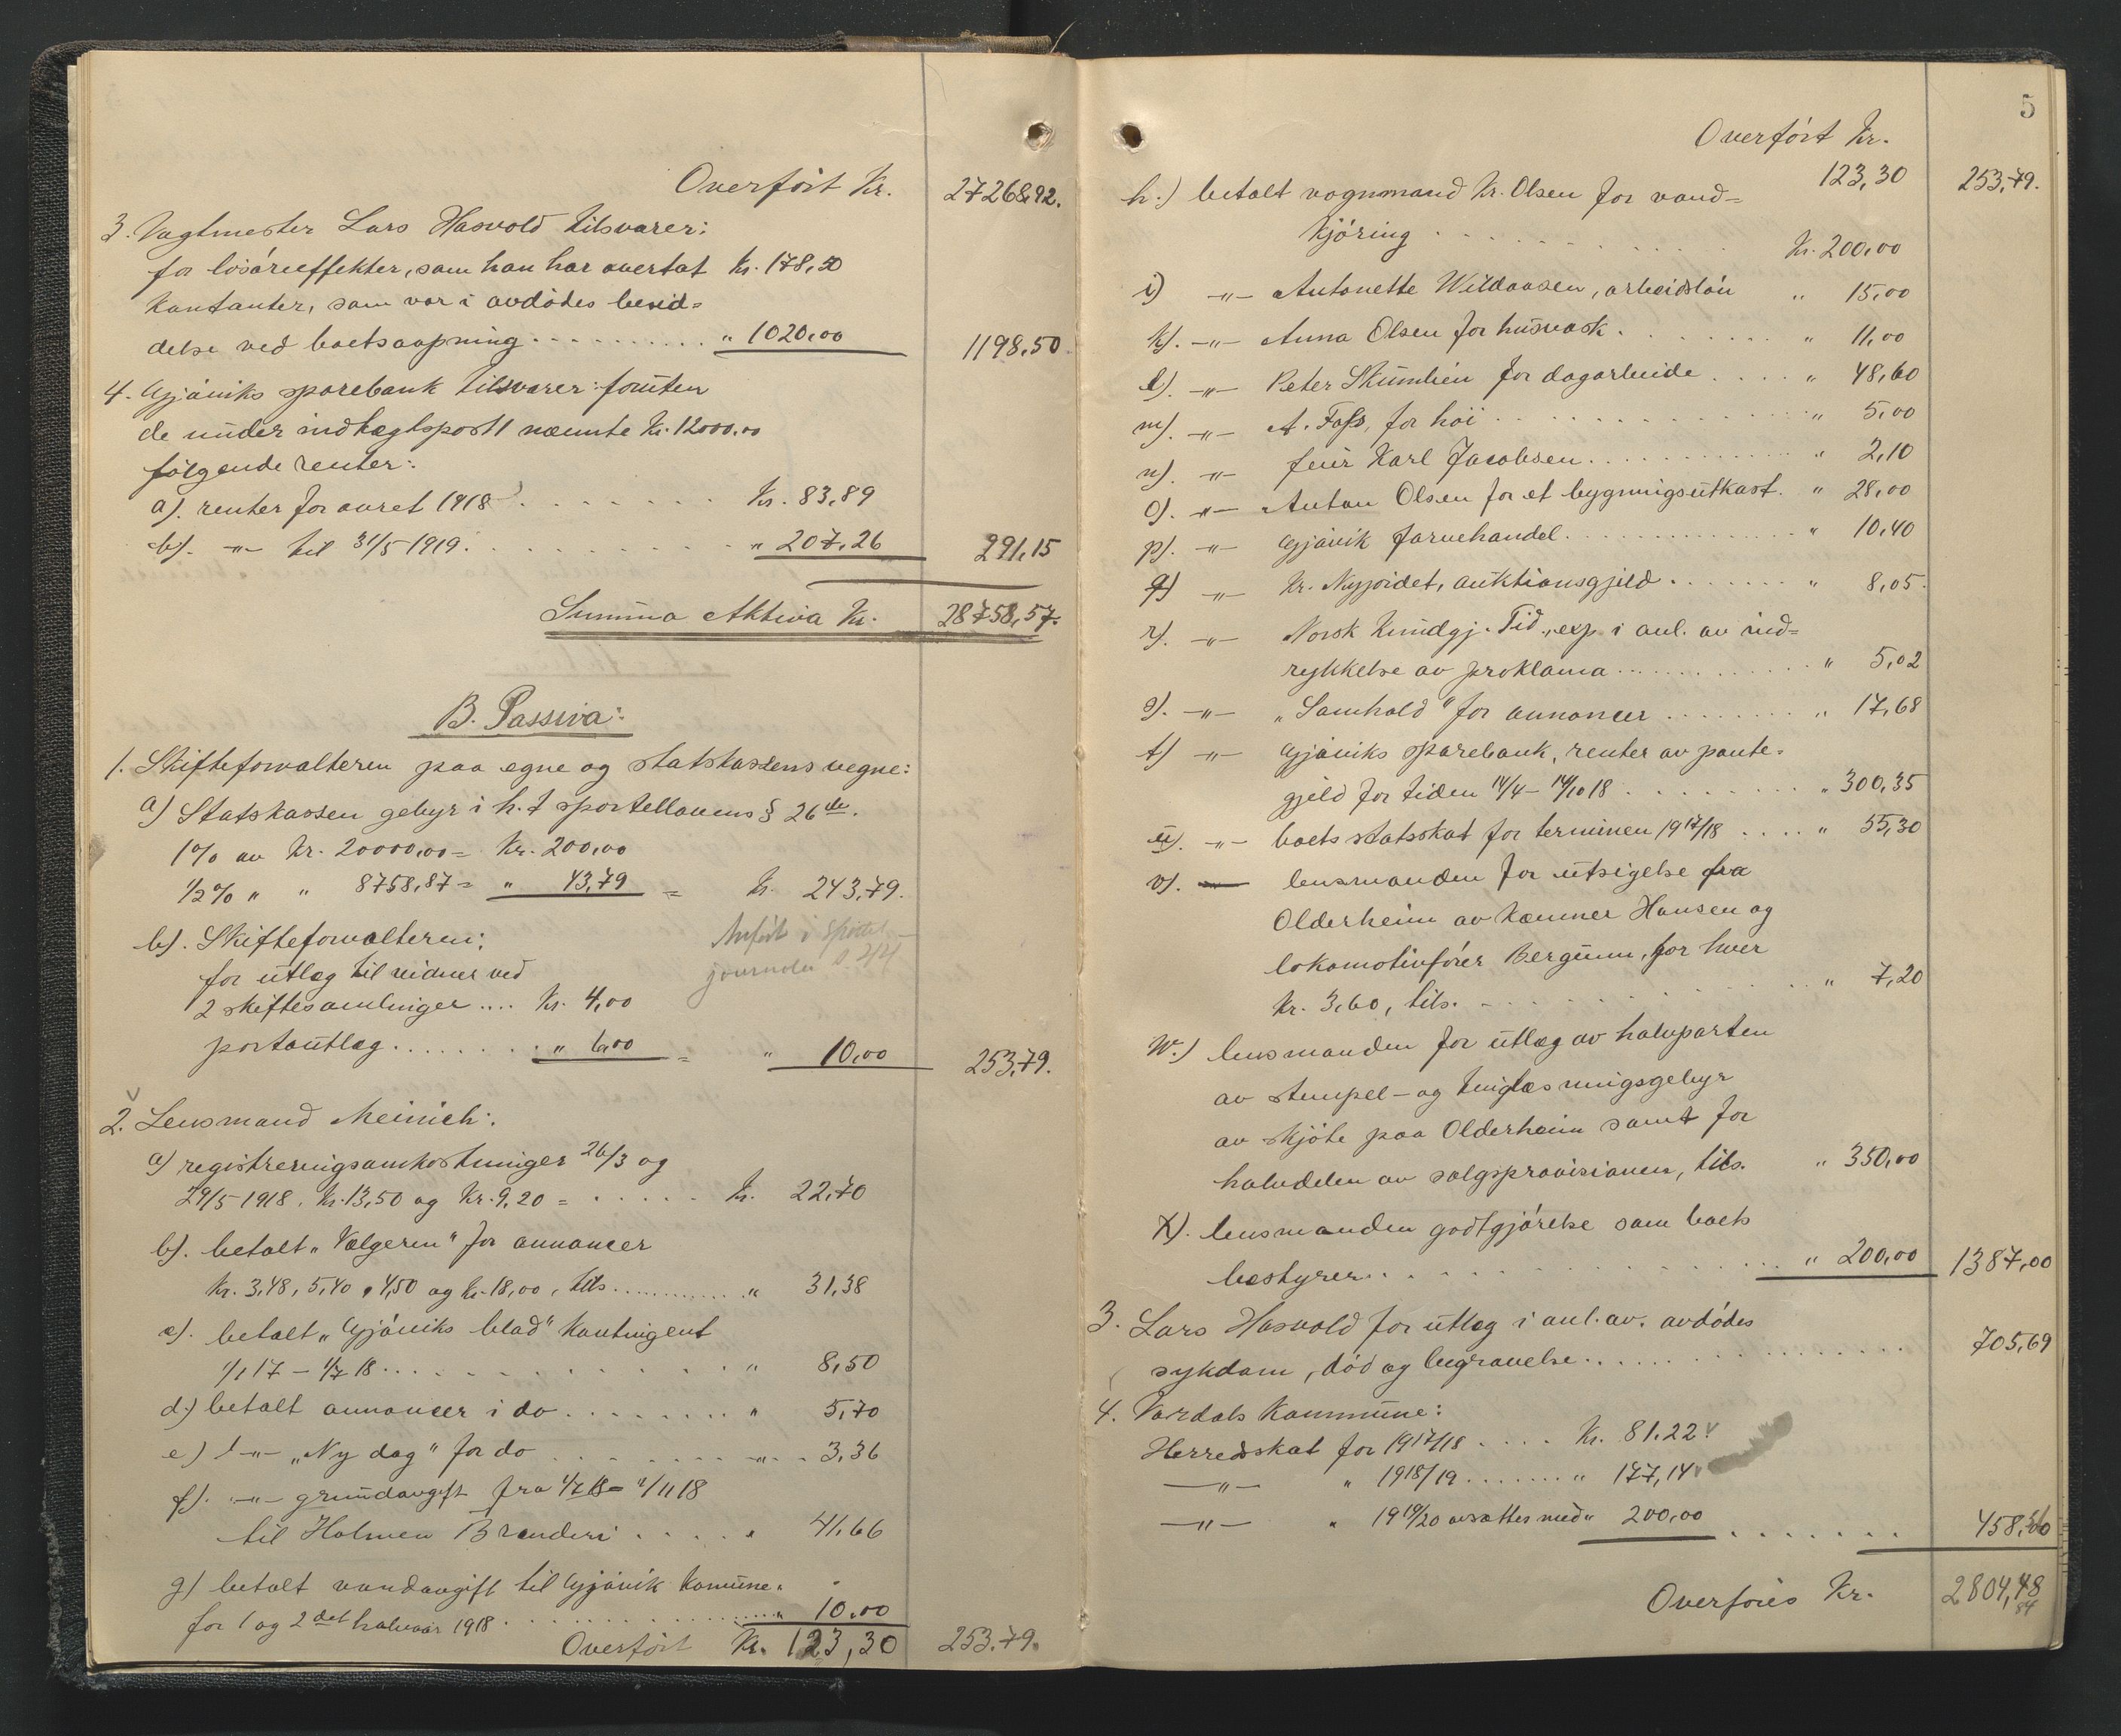 Overført Kr. 27268,92.
3. Vagtmester Lars Hasvold tilsvarer:
for løsøreeffekter, som han har overtat Kr. 178,50
Kontanter, som var i avdødes besid=
delse ved boetsaapning .......... " 1020,00 1198,50
4. Gjøviks sparebank tilsvarer: foruten
de under indtægtspost 1 nævnte Kr. 12000,00
følgende renter:
a). renter for aaret 1918 ....... Kr. 83,89
b). -"- til 31/5 1919. ......... " 207,26 291,15
Summa Aktiva Kr. 28758,57.
B. Passiva:
1. Skifteforvalteren paa egne og statskassens vegne:
a) Statskassen gebyr i h. t sportellovens § 26 de.
1% av Kr. 20000,00 = Kr. 200,00
1/2% " " 8758,87 = " 43,79 = Kr. 243,79.
b). Skifteforvalteren:
Anført i Sportel-
for utlæg til vidner ved
journalen s. 244
2 skiftesamlinger .... Kr. 4,00
portoutlæg ........ " 6,00 = " 10,00 253,79.
2. Lensmand Meinich:
a) registreringsomkostninger 26/3 og
29/5 1918. Kr. 13,50 og Kr. 9,20 = ..... Kr. 22,70
b). betalt "Vælgeren" for annoncer
Kr. 3,48, 5,40, 4,50 og Kr. 18,00, tils ........... " 31,38
c). betalt "Gjøviks blad" Kontingent
1/1 17 - 1/7 18 ............ " 8,50
d.) betalt annoncer i do ........ " 5,70
e) -"- "Ny dag" for do ........ " .. 3,36
f). -"- grundavgift fra 1/7 18 - 1/11 18
til Holmen Brænderi ..... " 41,66
g) betalt vandavgift til Gjøvik Komune.
for 1 og 2 det halvaar 1918 ............ " 10,00
Overført Kr. 123,30 253.79.
5
Overført Kr.
123,30 253,79.
h.) betalt vognmand Kr. Olsen for vand=
kjøring ............ Kr. 200,00
i) -"- Antonette Wildaasen, arbeidsløn " 15,00
k). -"- Anna Olsen for husvask ........ " 11,00
l). -"- Peter Skumlien for dagarbeide .... " 48,60
m). -"- A. Foss, for høi ............ " 5,00
n). -"- feier Karl Jacobsen ............ " 2,10
o). -"- Anton Olsen for et bygningsutkast. " 28,00
p). -"- Gjøvik farvehandel ............. " 10,40
q) -"- Kr. Nyjordet, auktionsgjeld ....... " 8,05.
r). -"- Norsk Kundgj. Tid., exp. i anl. av ind=
rykkelse av proklama ............ " 5,02
s). -"- "Samhold" for annoncer ........ " 17,68
t) -"- Gjøviks sparebank, renter av pante=
gjeld for tiden 14/4 - 14/10 18 ......... " 300,35
u). -"- boets statsskat for terminen 1917/18 .... " 55,30
v). lensmanden for utsigelse fra
Olderheim av Kæmner Hansen og
lokomotivfører Bergum, for hver
Kr. 3,60, tils. ............. " 7,20
w.) lensmanden for utlæg av halvparten
av stempel- og tinglæsningsgebyr
av skjøte paa Olderheim samt for
halvdelen av salgsprovisionen, tils. " 350,00
x). lensmanden godtgjørelse som boets
bestyrer .................. " 200,00 1387,00
3. Lars Hasvold for utlæg i anl. av. avdødes
sykdom, død og begravelse ................. 705,69
4. Vardals Kommune:
Herredsskat for 1917/18 .... Kr. 81.22
-"- " 1918/19 ....... " 177,14
-"- " 1919/20 avsættes med " 200,00 ....... 458,50
Overføres Kr. 2804,48
84